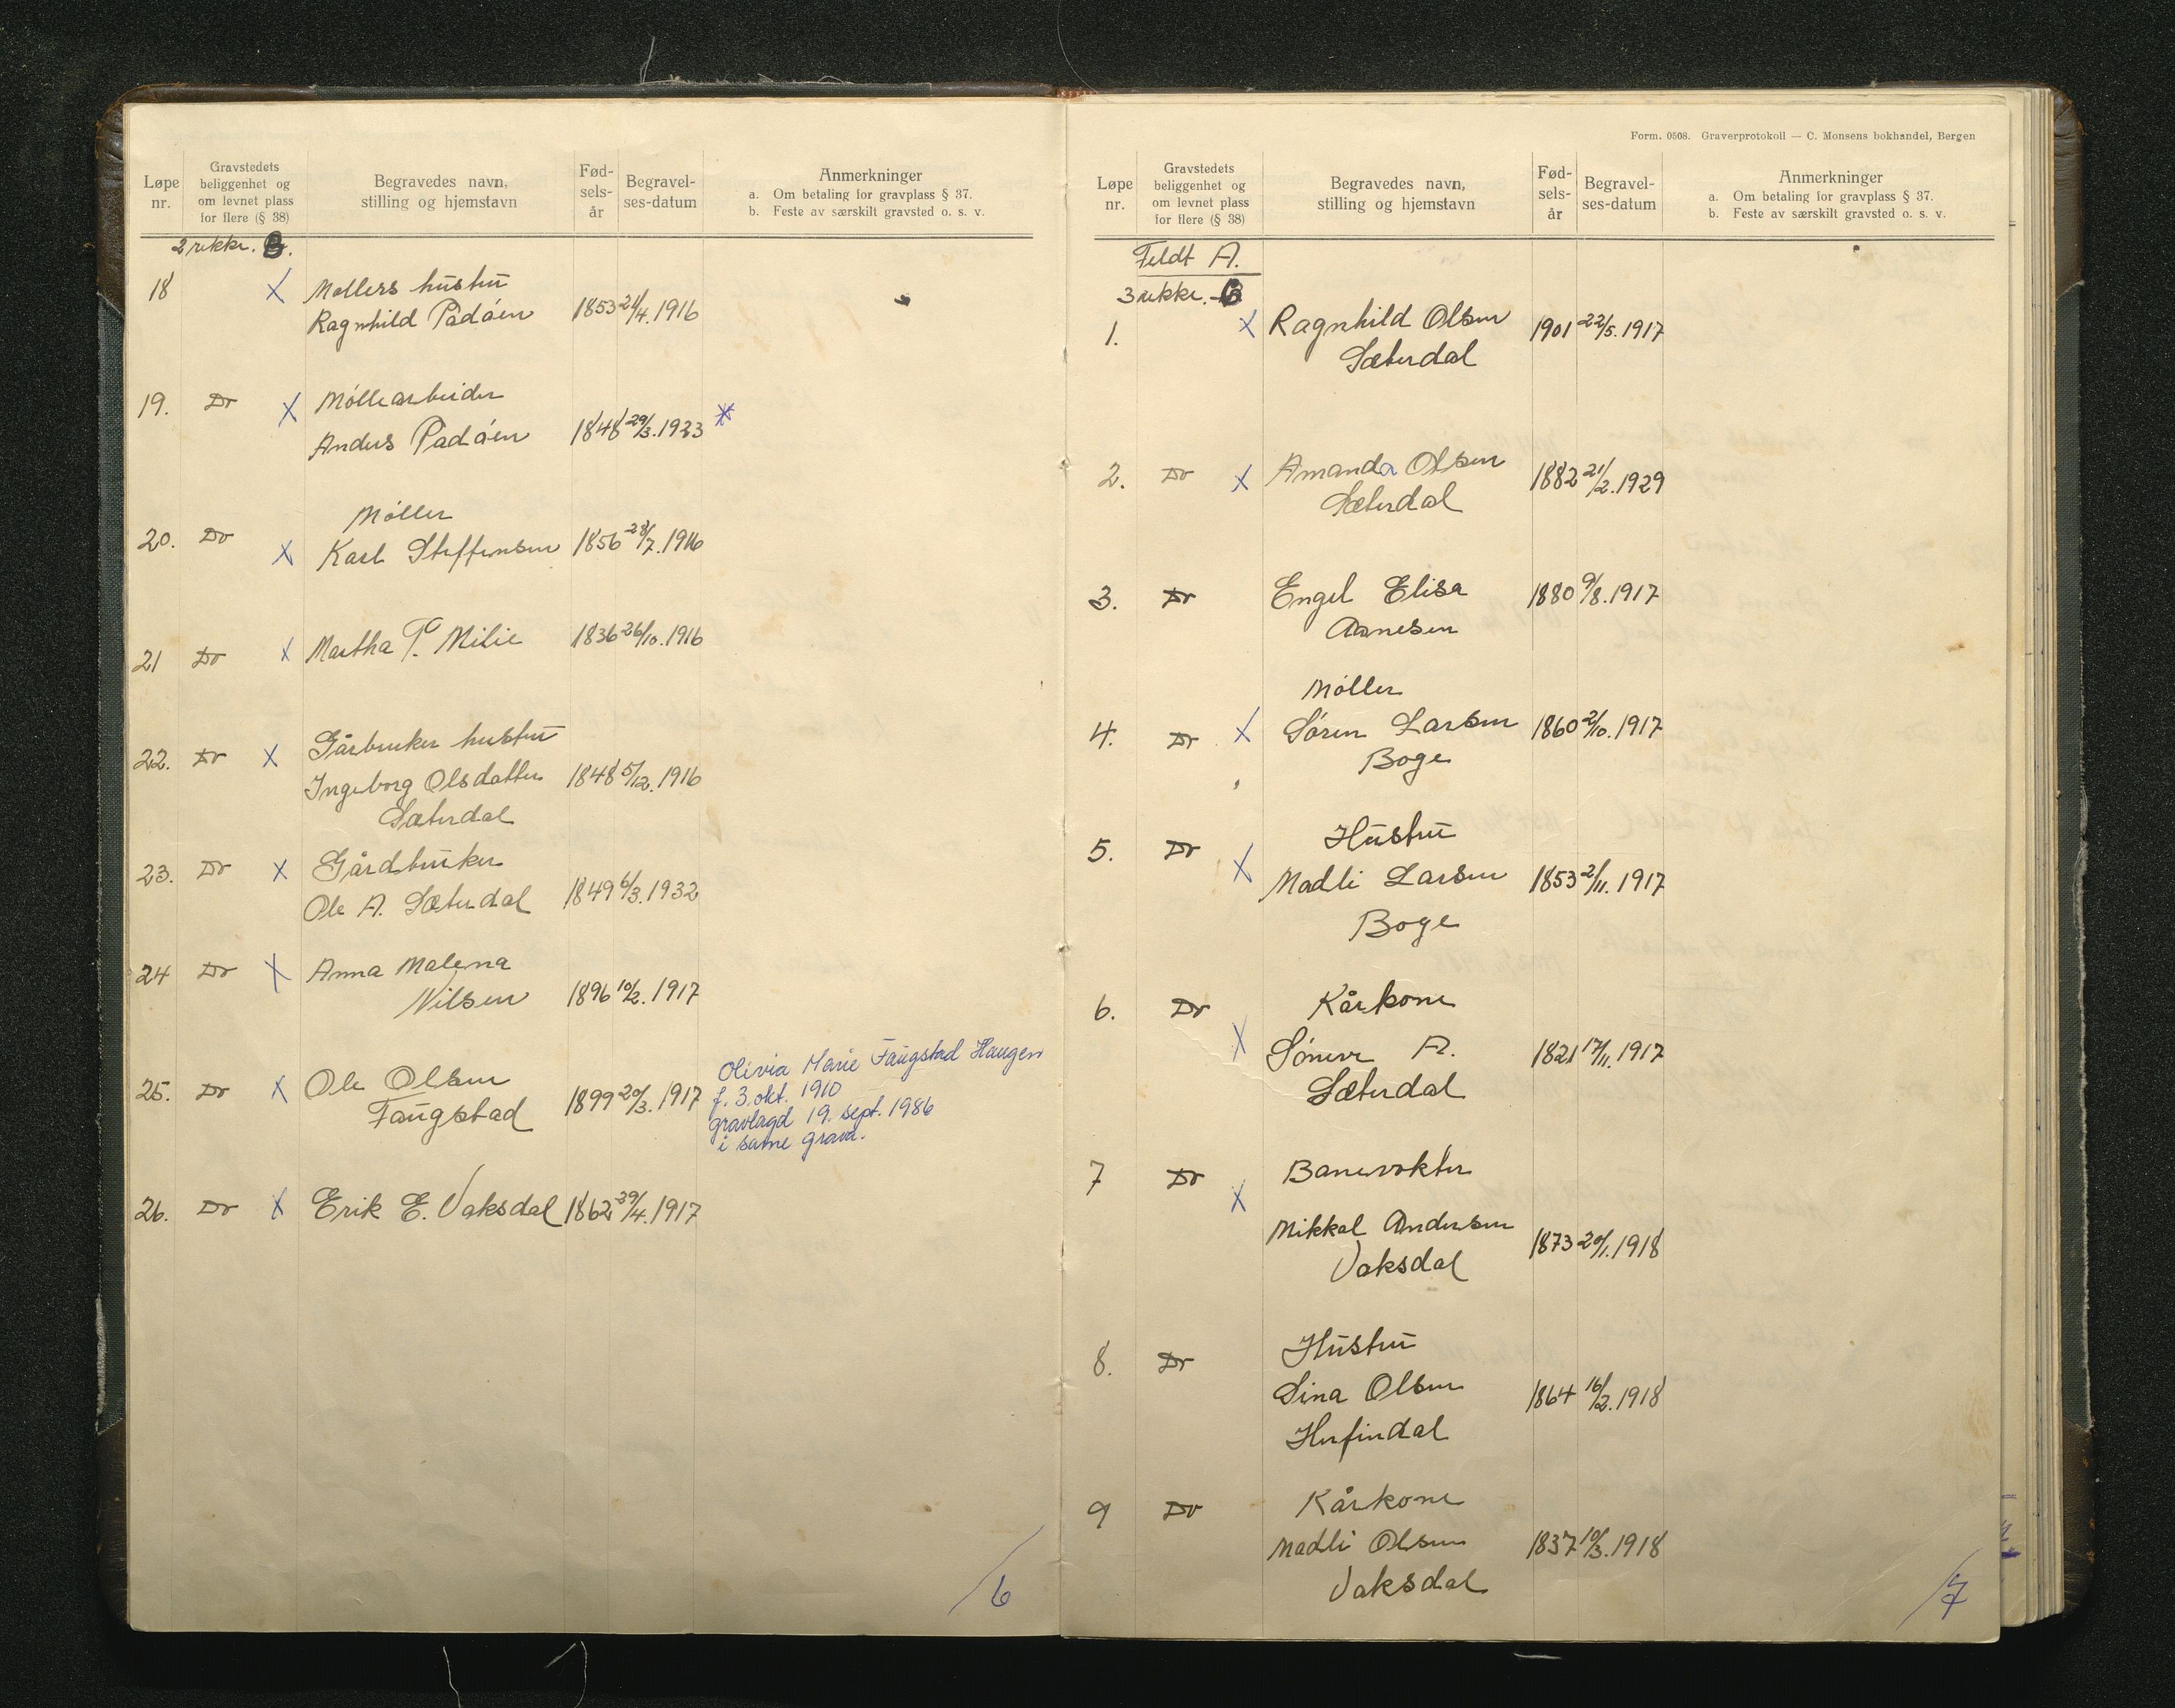 Løpe nr.
Gravstedets beliggenhet og om levnet plass for flere (§ 38)
Begravedes navn, stilling og hjemstavn
Fød-sels-år
Begravel-ses-datum
Anmerkninger
a. Om betaling for gravplass § 37.
b. Feste av særskilt gravsted o. s. v.
2 rekke. B.
18 X Møllers hustru
Ragnhild Padøen 1853 21/4. 1916
19. Do X Møllearbeider
Anders Padøen 1848 29/3. 1923 X
20. Do Møller
X Karl Steffensen 1856 28/7. 1916
21 Do X Martha T. Milie 1836 26/10. 1916
22. Do X Gårbruker hustru
Ingeborg Olsdatter 1848 5/12. 1916
Sæterdal
23. Do X Gårdbruker
Ole A. Sæterdal 1849 6/3. 1932
24 Do X Anna Malena
Nilsen 1896 10/2. 1917
25. Do X Ole Olsen
Faugstad 1899 20/3. 1917
Olivia Marie Faugstad Haugen
f. 3. okt. 1910
gravlagd 19. sept. 1986
i same grava.
26. Do X Erik E. Vaksdal 1862 29/4. 1917
/6
Form. 0508. Graverprotokoll — C. Monsens bokhandel, Bergen
Løpe nr.
Gravstedets beliggenhet og om levnet plass for flere (§ 38)
Begravedes navn, stilling og hjemstavn
Fød-sels-år
Begravel-ses-datum
Anmerkninger
a. Om betaling for gravplass § 37.
b. Feste av særskilt gravsted o. s. v.
Feldt A.
3 rekke.
1. X Ragnhild Olsen 1901 22/5. 1917
Sæterdal
2. Do X Amanda Olsen 1882 21/2. 1929
Sæterdal
3. Do Engel Elisa 1880 9/8. 1917
Arnesen
Møller
4. Do X Søren Larsen 1860 2/10. 1917
Boge
5. Do Hustru
X Madli Larsen 1853 2/11. 1917
Boge
6. Do Kårkone
X Sønerva A. 1821 17/11. 1917
Sæterdal
7 Do Banevokter
X
Mikkal Andersen 1873 20/1. 1918
Vaksdal
8. Do Hustru
Sina Olsen 1864 16/2. 1918
Herfindal
9 Do Kårkone
Madli Olsen 1837 10/3. 1918
Vaksdal
/7